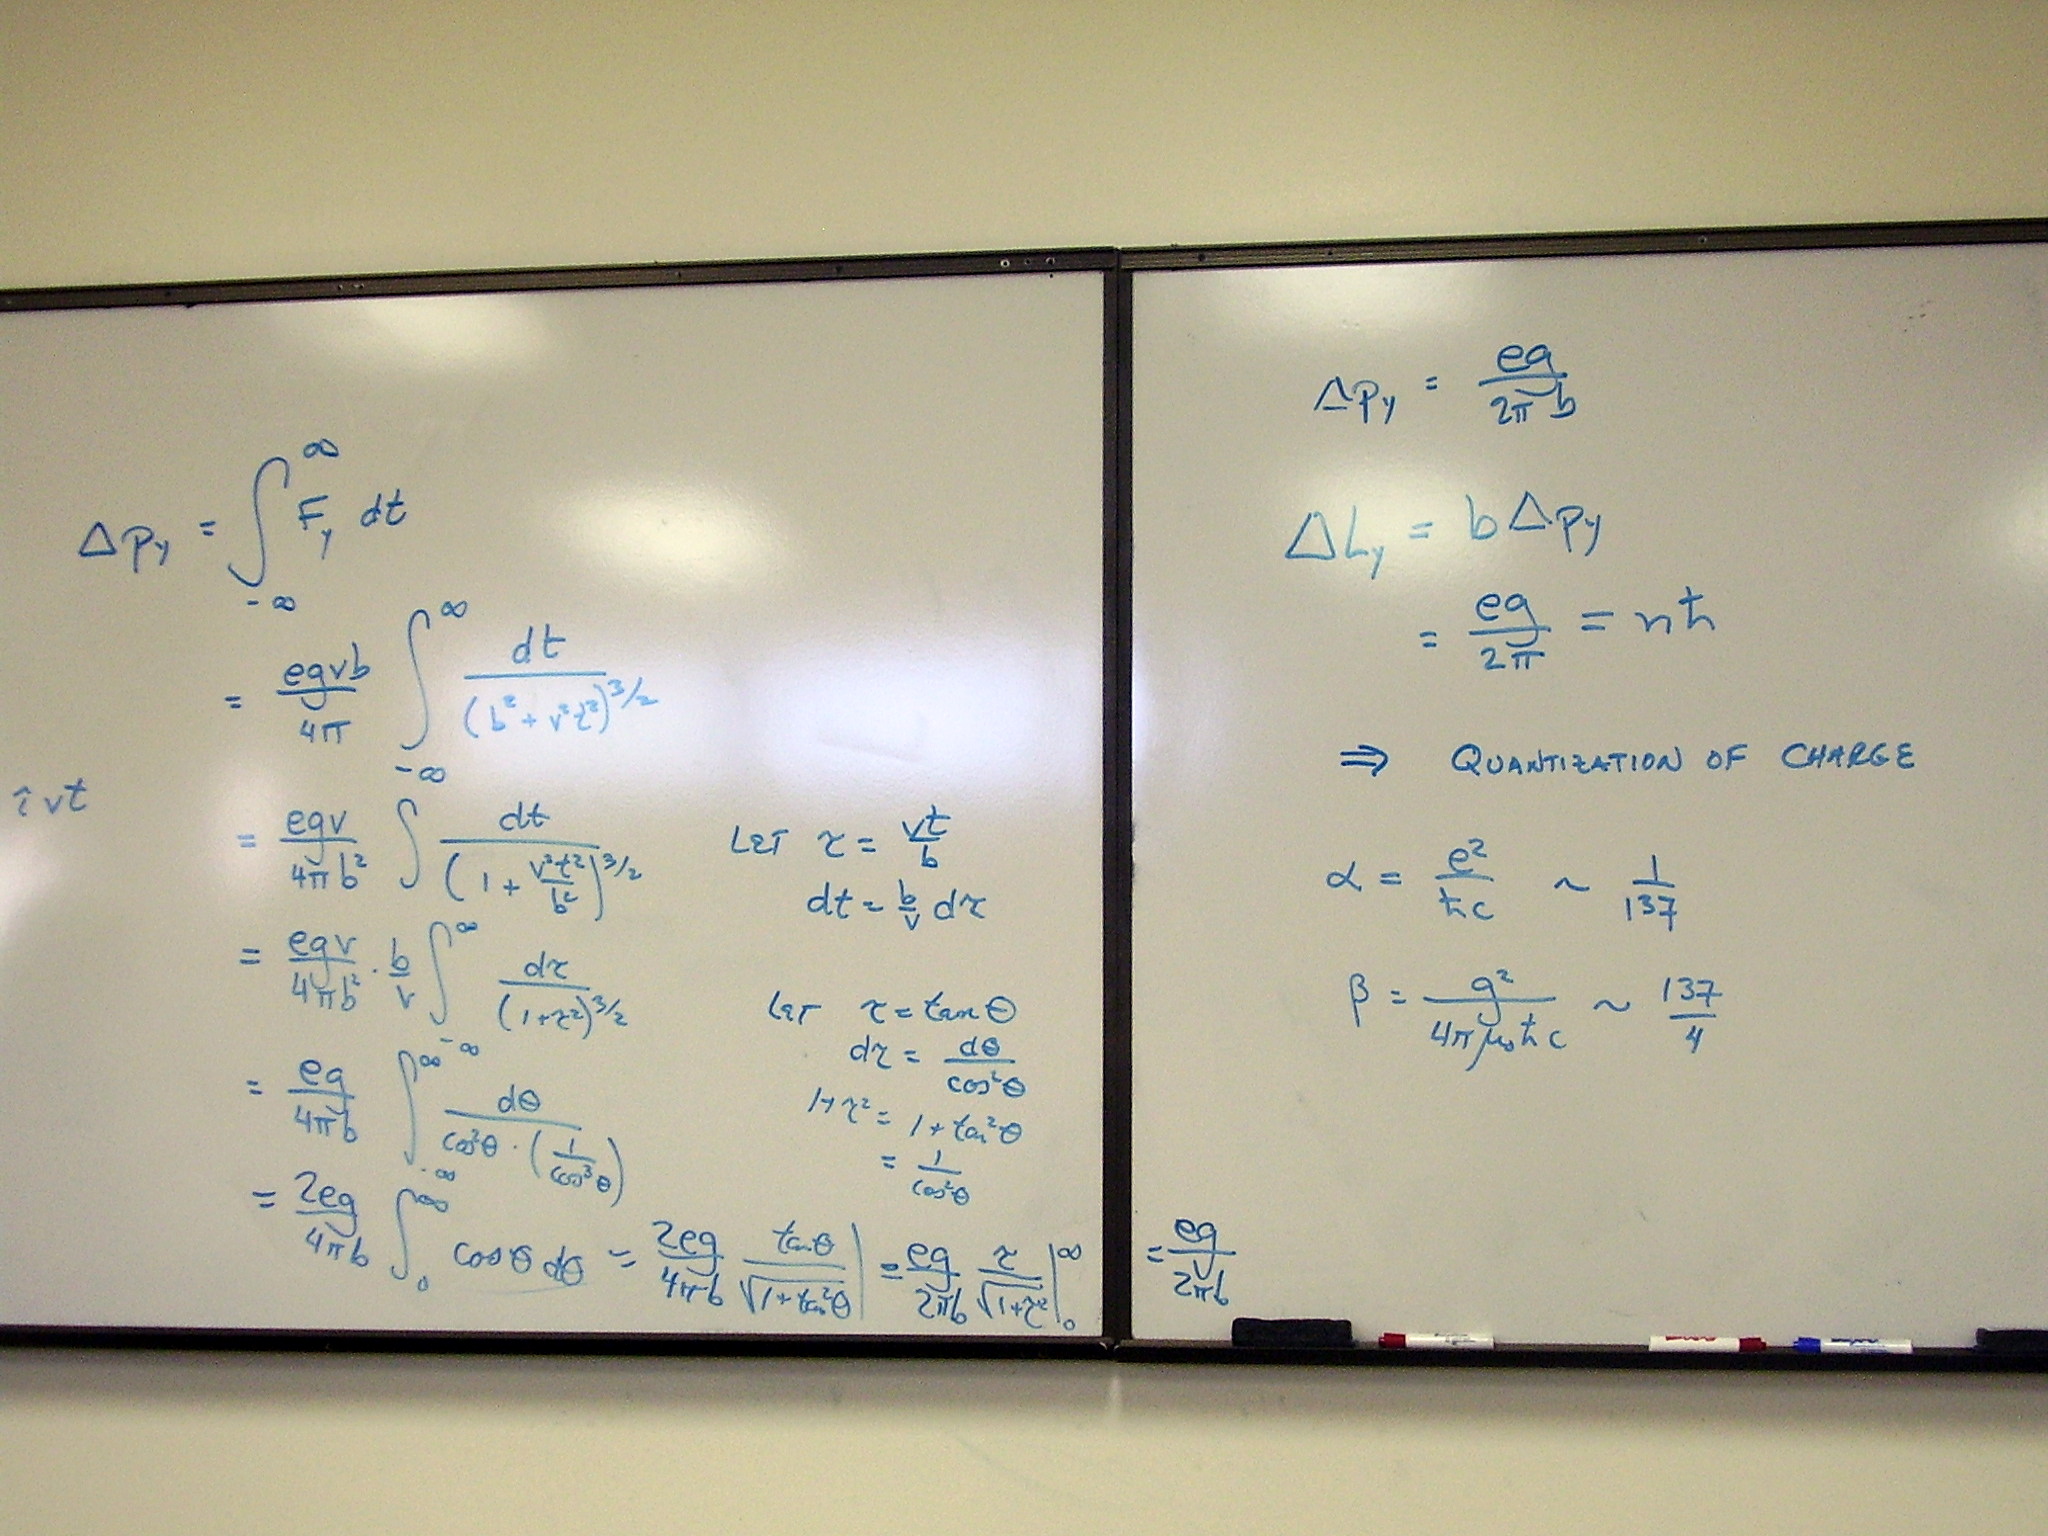 Δp_y = ∫_{-∞}^{∞} F_y dt
= egvb/4π ∫_{-∞}^{∞} dt/(b² + v²t²)^{3/2}
î vt
= egv/4πb² ∫ dt/(1 + v²t²/b²)^{3/2} LET τ = vt/b
dt = b/v dτ
= egv/4πb² · b/v ∫_{-∞}^{∞} dτ/(1+τ²)^{3/2} LET τ = tan θ
dτ = dθ/cos²θ
= eg/4πb ∫_{-∞}^{∞} dθ/cos²θ · (1/cos³θ) 1+τ² = 1 + tan²θ
= 1/cos²θ
= 2eg/4πb ∫_0^∞ cos θ dθ = 2eg/4πb tan θ/√(1+tan²θ) | = eg/2πb τ/√(1+τ²) |_0^∞ = eg/2πb
Δp_y = eg/2πb
ΔL_y = b Δp_y
= eg/2π = nħ
⇒ QUANTIZATION OF CHARGE
α = e²/ħc ~ 1/137
β = g²/4πμ₀ħc ~ 137/4